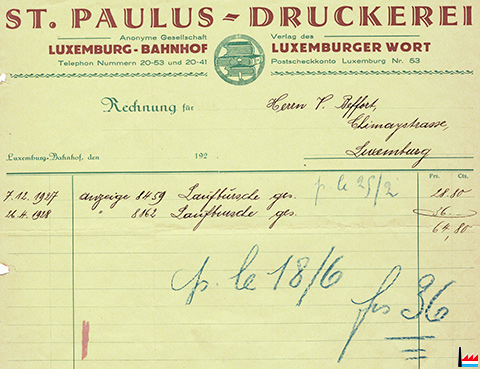 ST. PAULUS-DRUCKEREI
Anonyme Gesellschaft
LUXEMBURG-BAHNHOF
Telephon Nummern 20-53 und 20-41
Verlag des
LUXEMBURGER WORT
Postscheckkonto Luxemburg Nr. 53
Rechnung für
Herrn P. Beffort,
Chimaystrasse,
Luxemburg
Luxemburg-Bahnhof, den 192
Frs. Cts.
7.12.1927 Anzeige 8459 Laufbursche ges. p. le 25/2 28.80
26.4.1928 " 8162 Laufbursche ges. 36
64,80
p. le 18/6
frs 36